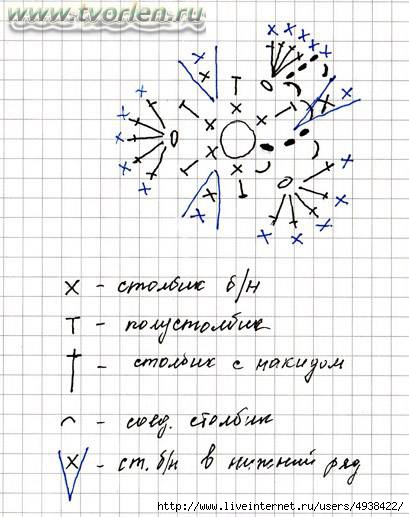 www.tvorlen.ru
х - столбик б/н
Т - полустолбик
† - столбик с накидом
⌒ - соед. столбик
х - ст. б/н в нижний ряд
http://www.liveinternet.ru/users/4938422/